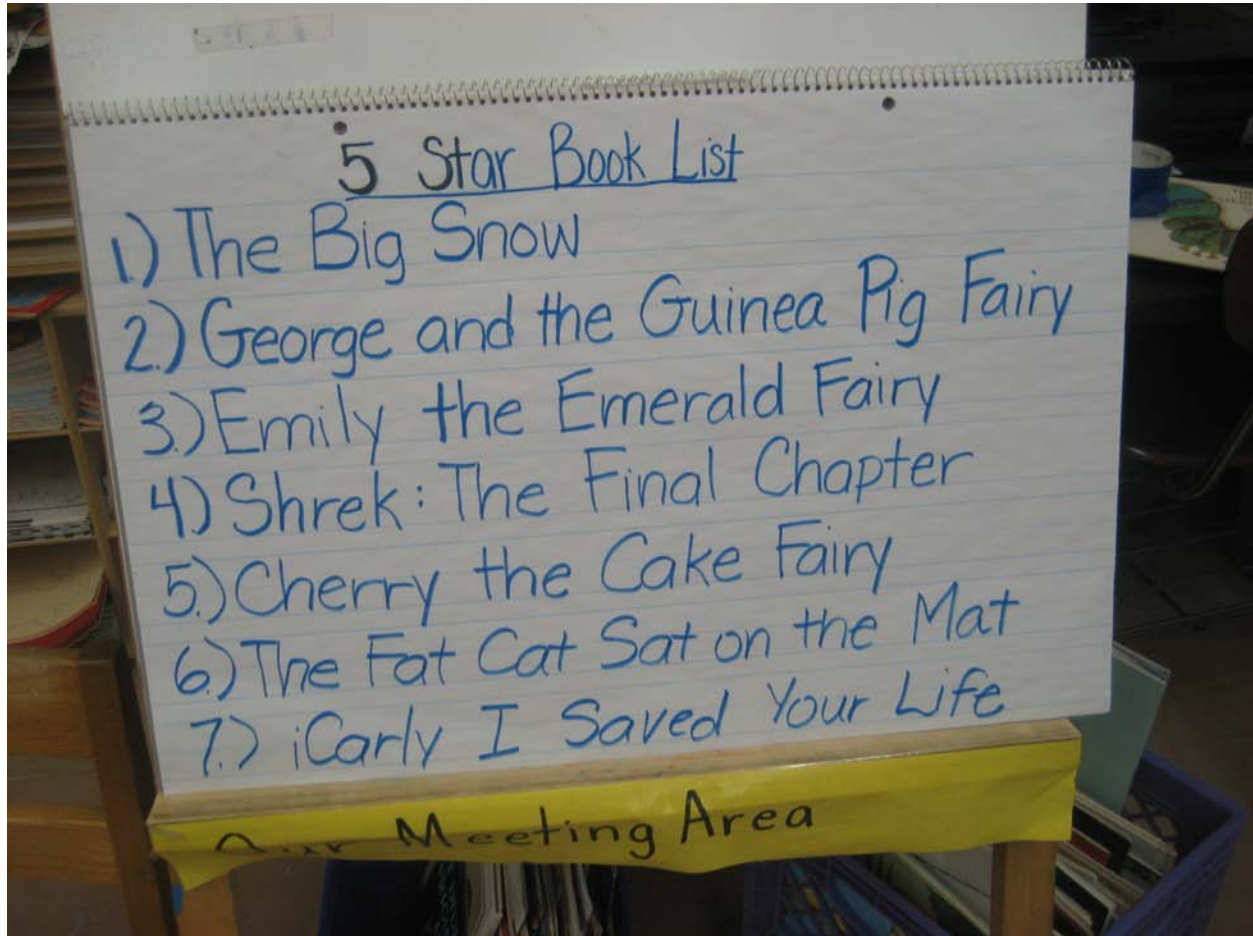 5 Star Book List
1.) The Big Snow
2.) George and the Guinea Pig Fairy
3.) Emily the Emerald Fairy
4.) Shrek: The Final Chapter
5.) Cherry the Cake Fairy
6.) The Fat Cat Sat on the Mat
7.) iCarly I Saved Your Life
Our Meeting Area